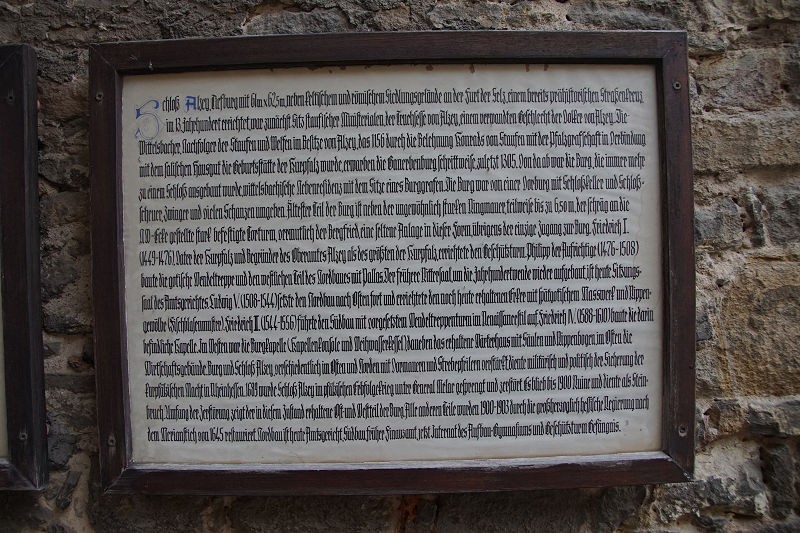 Schloß Alzey, Tiefburg mit 61m x 62,5m, neben keltischem und römischem Siedlungsgelände an der Furt der Selz, einem bereits prähistorischen Straßenkreuz,
im 13. Jahrhundert errichtet, war zunächst Sitz staufischer Ministerialen, der Truchsesse von Alzey, einem verwandten Geschlecht der Volker von Alzey. Die
Wittelsbacher, Nachfolger der Staufen und Welfen im Besitze von Alzey, das 1156 durch die Belehnung Konrads von Staufen mit der Pfalzgrafschaft in Verbindung
mit dem salischen Hausgut die Geburtsstätte der Kurpfalz wurde, erwarben die Ganerbenburg schrittweise, zuletzt 1305. Von da ab war die Burg, die immer mehr
zu einem Schloß ausgebaut wurde, wittelsbachische Nebenresidenz mit dem Sitze eines Burggrafen. Die Burg war von einer Vorburg mit Schloßkeller und Schloß-
scheuer, Zwinger und vielen Schanzen umgeben. Ältester Teil der Burg ist neben der ungewöhnlich starken Ringmauer, teilweise bis zu 6,50 m, der schräg an die
Ecke gestellte stark befestigte Torturm, vermutlich der Bergfried, eine seltene Anlage in dieser Form, übrigens der einzige Zugang zur Burg. Friedrich I.
(1449-1476), Vater der Kurpfalz und Begründer des Oberamtes Alzey als des größten der Kurpfalz, errichtete den Geschützturm. Philipp der Aufrichtige (1476-1508)
baute die gotische Wendeltreppe und den westlichen Teil des Nordbaues mit Pallas. Der frühere Rittersaal, um die Jahrhundertwende wieder aufgebaut, ist heute Sitzungs-
saal des Amtsgerichtes. Ludwig V. (1508-1544) setzte den Nordbau nach Osten fort und errichtete den noch heute erhaltenen Erker mit spätgotischem Masswerk und Rippen-
gewölbe (Fischblasenmuster). Friedrich II. (1544-1556) führte den Südbau mit vorgesetztem Wendeltreppenturm im Renaissancestil auf. Friedrich IV. (1588-1610) baute die darin
befindliche Kapelle. Im Westen war die Burgkapelle (Kapellenkonsole und Weihwasserkessel), daneben das erhaltene Pförtnerhaus mit Säulen und Rippenbogen, im Osten die
Wirtschaftsgebäude. Burg und Schloß Alzey, verschiedentlich im Osten und Norden mit Vormauern und Strebepfeilern verstärkt, diente militärisch und politisch der Sicherung der
kurpfälzischen Macht in Rheinhessen. 1689 wurde Schloß Alzey im pfälzischen Erbfolgekrieg unter General Melac gesprengt und zerstört. Es blieb bis 1900 Ruine und diente als Stein-
bruch. Umfang der Zerstörung zeigt der in diesem Zustand erhaltene Ost- und Westteil der Burg. Alle anderen Teile wurden 1900-1903 durch die großherzoglich hessische Regierung nach
dem Merianstich von 1645 restauriert. Nordbau ist heute Amtsgericht, Südbau früher Finanzamt, jetzt Internat des Aufbau-Gymnasiums und Geschützturm Gefängnis.